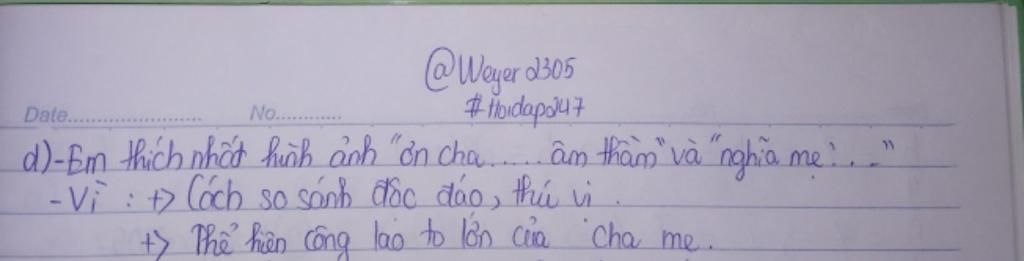 @Weyer2305
Date........................ No............
#Hoidap247
d)-Em thích nhất hình ảnh "ơn cha..... âm thầm" và "nghĩa mẹ:..."
-Vì : +> Cách so sánh độc đáo, thú vị.
+> Thể hiện công lao to lớn của cha mẹ.